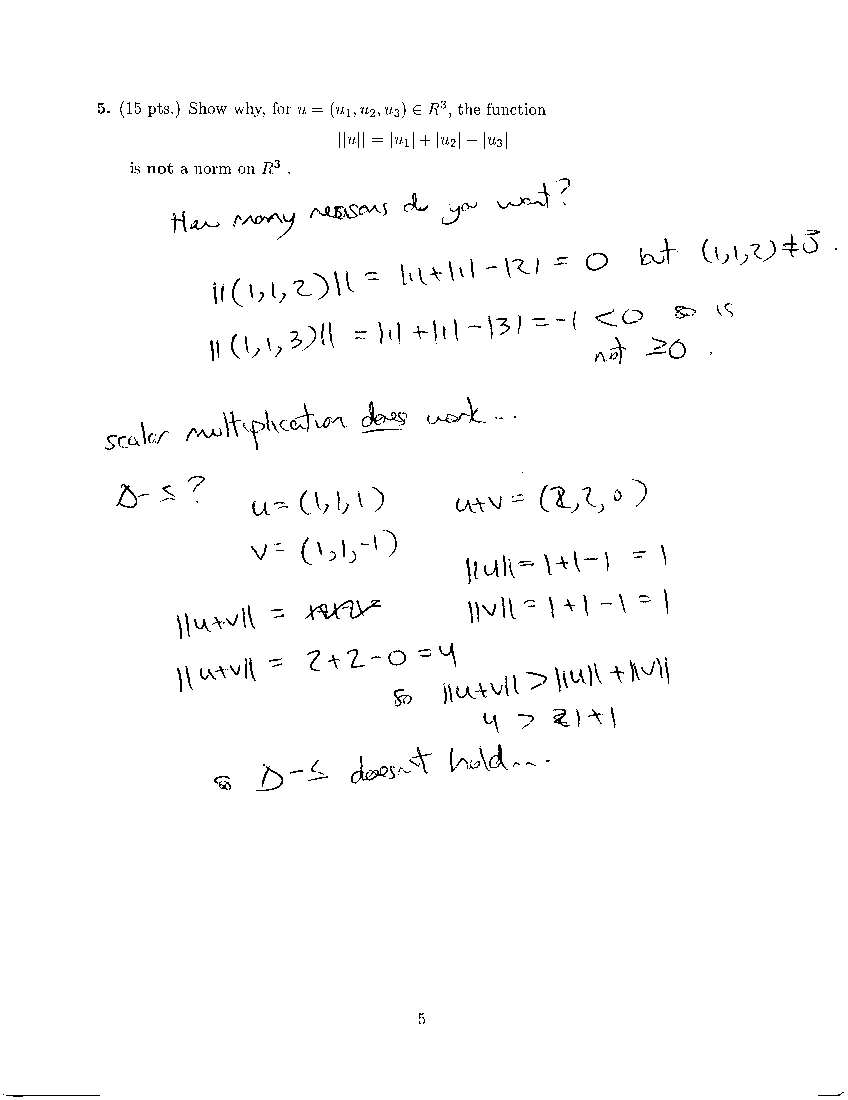 5. (15 pts.) Show why, for u = (u₁, u₂, u₃) ∈ R³, the function
||u|| = |u₁| + |u₂| − |u₃|
is not a norm on R³ .
How many reasons do you want?
||(1,1,2)|| = |1|+|1|-|2| = 0 but (1,1,2) ≠ 0⃗ .
||(1,1,3)|| = |1|+|1|-|3| = -1 < 0 so is
not ≥0 .
scalar multiplication does work...
Δ-≤ ?
u = (1,1,1) u+v = (2,2,0)
v = (1,1,-1)
||u|| = 1+1-1 = 1
||u+v|| =
||v|| = 1+1-1 = 1
||u+v|| = 2+2-0 = 4
so ||u+v|| > ||u|| + ||v||
4 > 1+1
so Δ-≤ doesn't hold...
5